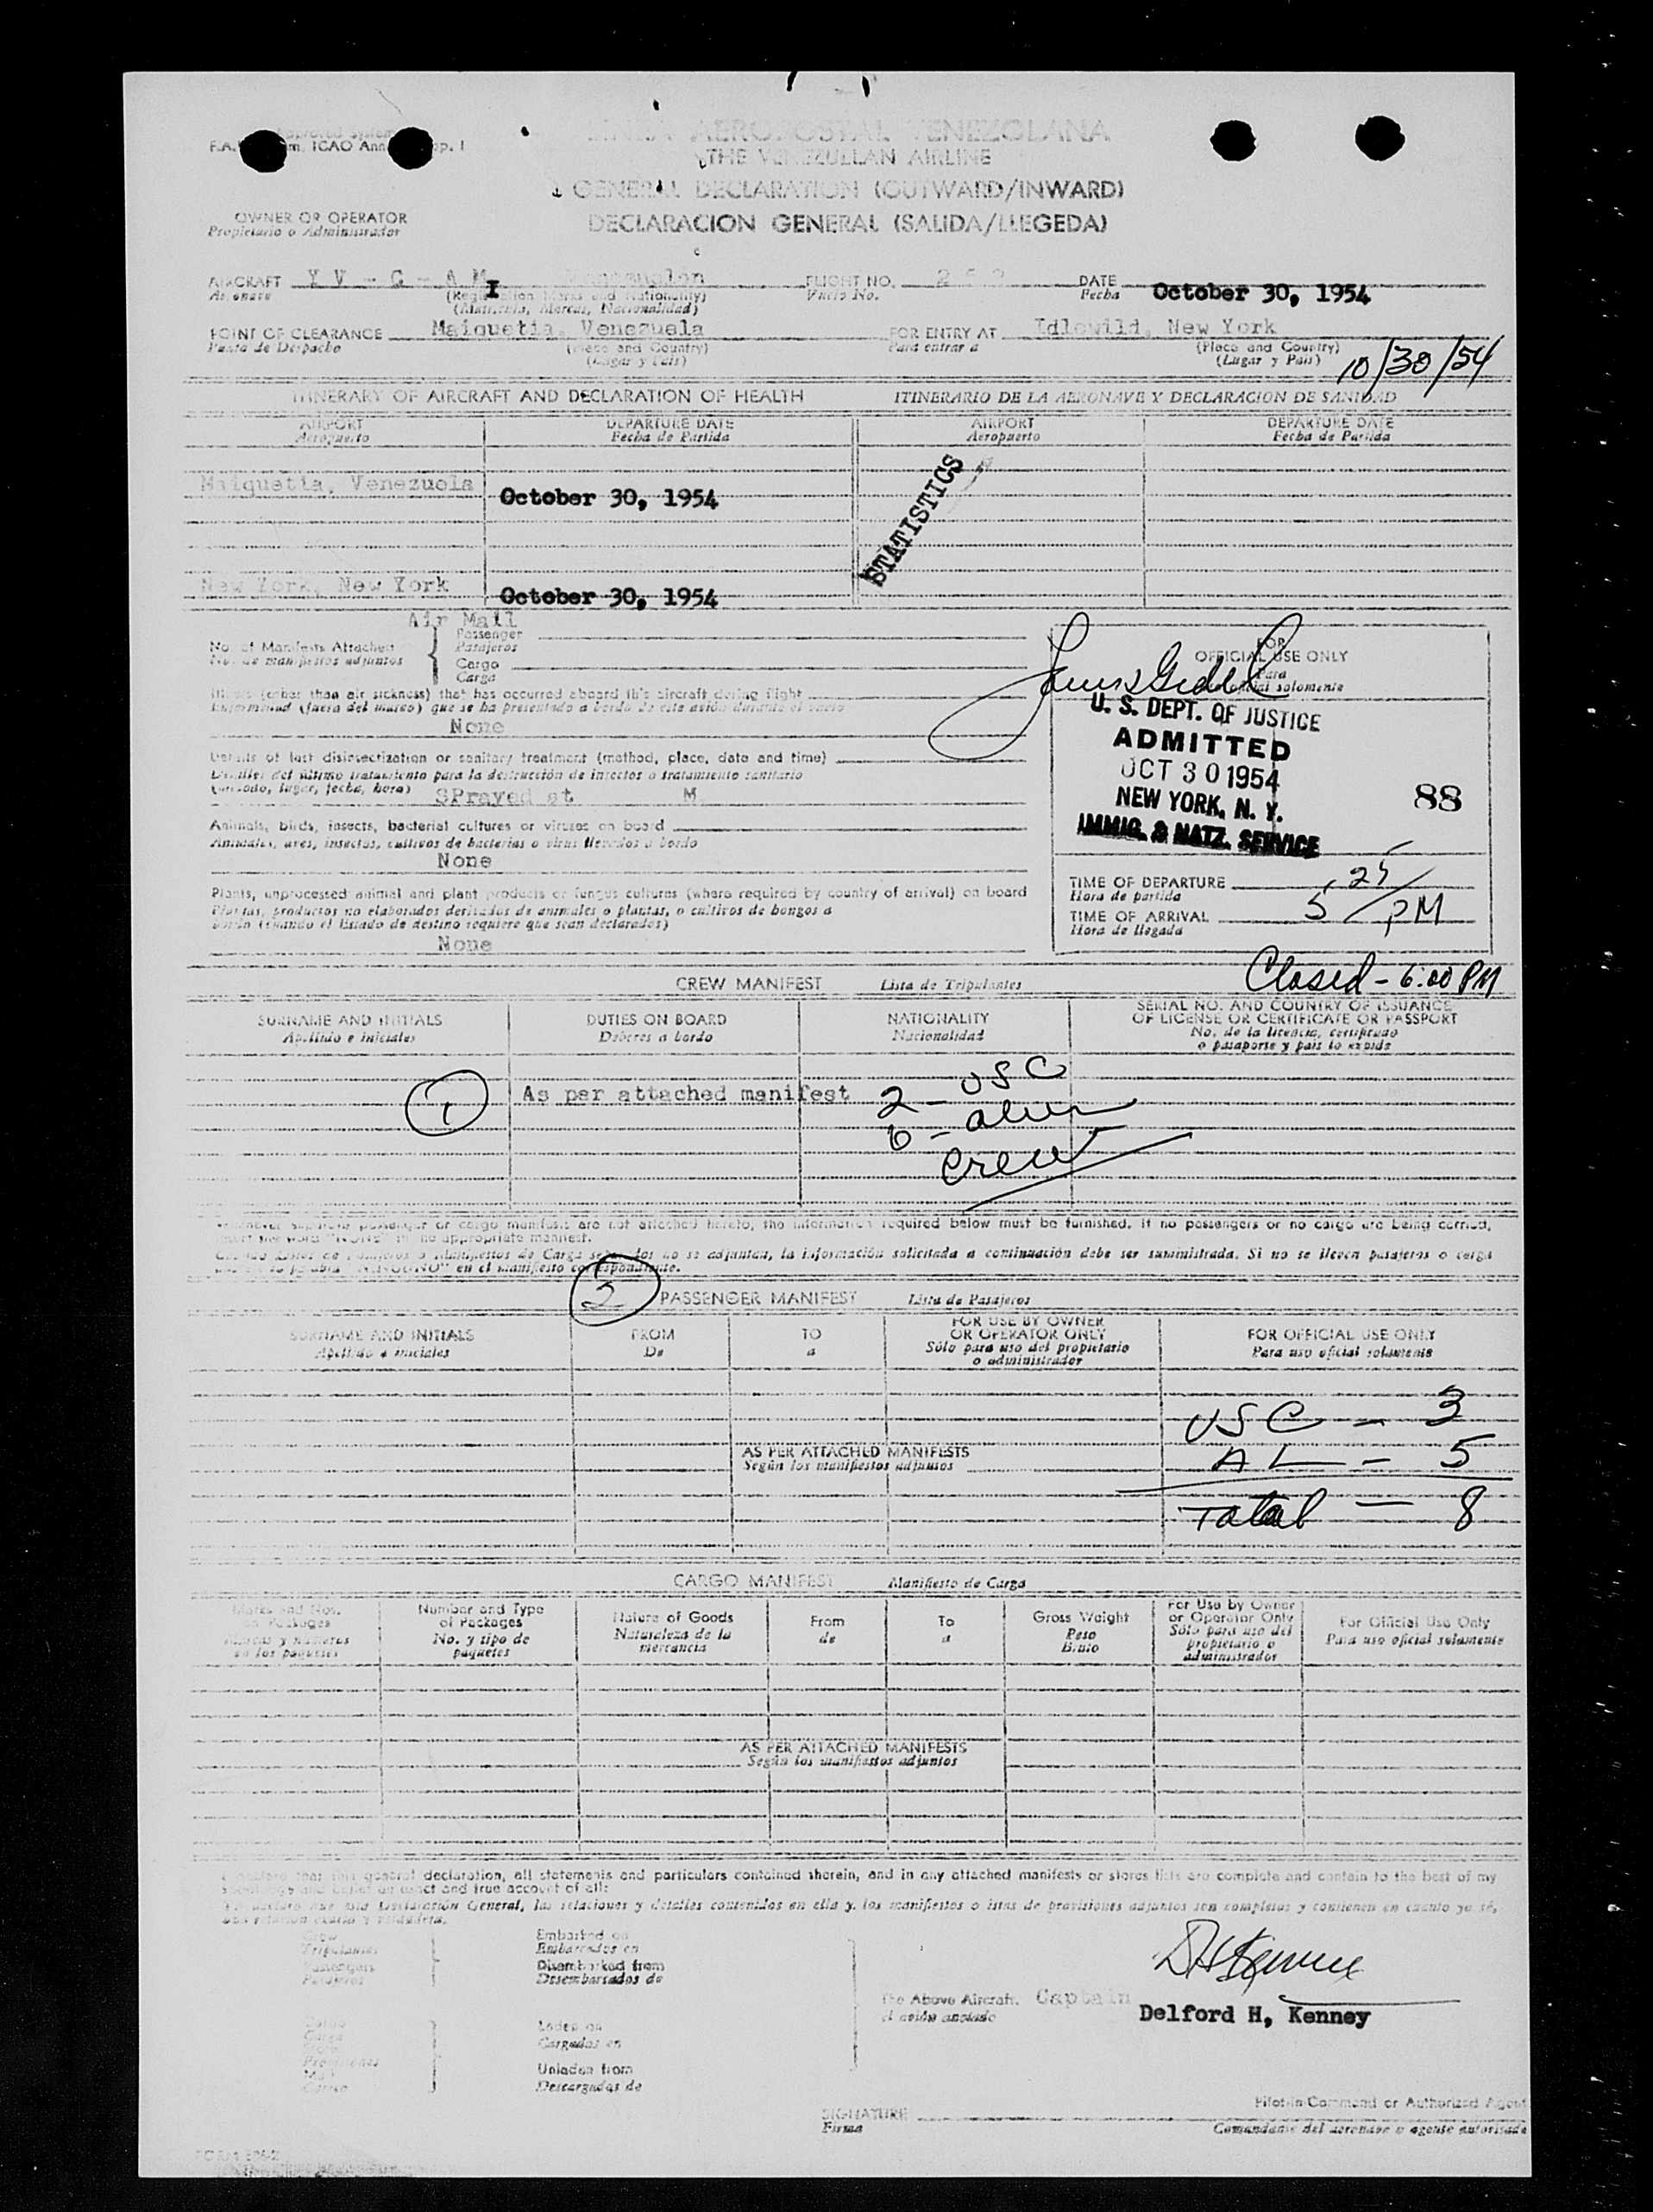 LINEA AEROPOSTAL VENEZOLANA
THE VENEZUELAN AIRLINE
GENERAL DECLARATION (OUTWARD/INWARD)
DECLARACION GENERAL (SALIDA/LLEGEDA)
OWNER OR OPERATOR
Propietario o Administrador
AIRCRAFT Y V - C - A M I FLIGHT NO. DATE October 30, 1954
Aeronave Vuelo No. Fecha
(Registration Marks and Nationality)
(Matricula, Marcas, Nacionalidad)
POINT OF CLEARANCE Maiquetia, Venezuela FOR ENTRY AT Idlewild, New York
Punto de Despacho (Place and Country) Para entrar a (Place and Country)
(Lugar y Pais) (Lugar y Pais) 10/30/54
ITINERARY OF AIRCRAFT AND DECLARATION OF HEALTH ITINERARIO DE LA AERONAVE Y DECLARACION DE SANIDAD
AIRPORT DEPARTURE DATE AIRPORT DEPARTURE DATE
Aeropuerto Fecha de Partida Aeropuerto Fecha de Partida
Maiquetia, Venezuela October 30, 1954
STATISTICS
New York, New York October 30, 1954
Air Mail
No. of Manifests Attached Passenger
No. de manifiestos adjuntos Pasajeros
Cargo
Carga
Illness (other than air sickness) that has occurred aboard this aircraft during flight
Enfermedad (fuera del mareo) que se ha presentado a bordo de este avión durante el vuelo
None
Details of last disinsectization or sanitary treatment (method, place, date and time)
Detalles del último tratamiento para la destrucción de insectos o tratamiento sanitario
(método, lugar, fecha, hora) SPrayed at M.
Animals, birds, insects, bacterial cultures or viruses on board
Animales, aves, insectos, cultivos de bacterias o virus llevados a bordo
None
Plants, unprocessed animal and plant products or fungus cultures (where required by country of arrival) on board
Plantas, productos no elaborados derivados de animales o plantas, o cultivos de hongos a
bordo (cuando el Estado de destino requiere que sean declarados)
None
FOR
OFFICIAL USE ONLY
Para
uso oficial solamente
U. S. DEPT. OF JUSTICE
ADMITTED
OCT 30 1954
NEW YORK, N. Y.
IMMIG. & NATZ. SERVICE
88
TIME OF DEPARTURE
Hora de partida
TIME OF ARRIVAL 5:25 PM
Hora de llegada
Closed - 6:00 PM
CREW MANIFEST Lista de Tripulantes
SURNAME AND INITIALS DUTIES ON BOARD NATIONALITY SERIAL NO. AND COUNTRY OF ISSUANCE
OF LICENSE OR CERTIFICATE OR PASSPORT
Apellido e iniciales Deberes a bordo Nacionalidad No. de la licencia, certificado
o pasaporte y pais lo expide
1 As per attached manifest 2 - USC
6 - alien
crew
Whenever separate passenger or cargo manifests are not attached hereto, the information required below must be furnished. If no passengers or no cargo are being carried,
insert the word "NONE" in the appropriate manifest.
se adjuntan, la información solicitada a continuación debe ser suministrada. Si no se lleven pasajeros o carga
"NINGUNO" en el manifiesto correspondiente.
2 PASSENGER MANIFEST Lista de Pasajeros
SURNAME AND INITIALS FROM TO FOR USE BY OWNER
OR OPERATOR ONLY FOR OFFICIAL USE ONLY
Apellido e iniciales De a Sólo para uso del propietario
o administrador Para uso oficial solamente
USC - 3
AS PER ATTACHED MANIFESTS AL - 5
Según los manifiestos adjuntos
Total - 8
CARGO MANIFEST Manifiesto de Carga
Marks and Nos.
on Packages
Marcas y números
en los paquetes
Number and Type
of Packages
No. y tipo de
paquetes
Nature of Goods
Naturaleza de la
mercancia
From
de
To
a
Gross Weight
Peso
Bruto
For Use by Owner
or Operator Only
Sólo para uso del
propietario o
administrador
For Official Use Only
Para uso oficial solamente
AS PER ATTACHED MANIFESTS
Según los manifiestos adjuntos
I declare that this general declaration, all statements and particulars contained therein, and in any attached manifests or stores lists are complete and contain to the best of my
knowledge and belief an exact and true account of all:
Declaración General, las relaciones y detalles contenidos en ella y, los manifiestos o istas de provisiones adjuntos son completos y contienen en cuanto yo sé,
una relación exacta y verdadera.
Crew Embarked on
Tripulantes Embarcados en
Passengers Disembarked from
Pasajeros Desembarcados de
The Above Aircraft. Captain Delford H, Kenney
el avión anotado
Laden on
Cargadas en
Unladen from
Descargadas de
Pilot-in-Command or Authorized Agent
SIGNATURE
Firma Comandante del aeronave o agente autorisado